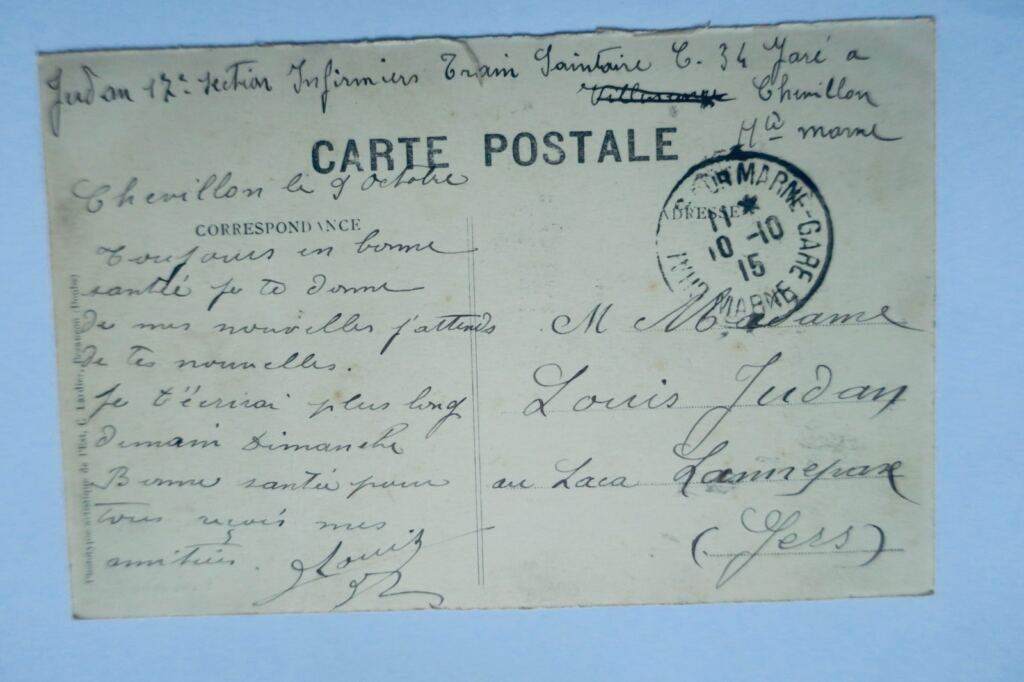 Judan 17e section Infirmiers Train Sanitaire C. 34 Garé a
Chevillon
Hte marne
CARTE POSTALE
Chevillon le 9 octobre
CORRESPONDANCE
ADRESSE
MARNE-GARE
11 *
10 -10
15
MARNE
Toujours en bonne
santée je te donne
de mes nouvelles j'attends
de tes nouvelles.
je t'écrirai plus long
demain Dimanche
Bonne santée pour
tous reçois mes
amitiés. Louis
M Madame
Louis Judan
au Laca Lannepax
(Gers)
Phototypie artistique de l'Est, C. Lardier, Besançon (Doubs)